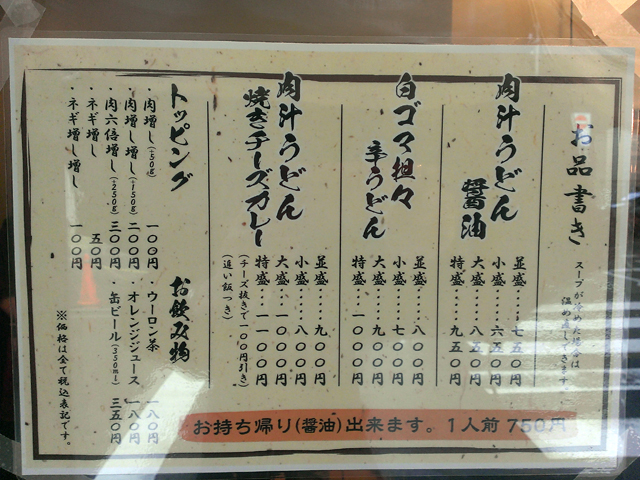 お品書き
スープが冷めた場合は
温め直しできます。
肉汁うどん
醤油
並盛・・・・・七五〇円
小盛・・・・・六五〇円
大盛・・・・・八五〇円
特盛・・・・・九五〇円
白ゴマ担々
辛うどん
並盛・・・・・八〇〇円
小盛・・・・・七〇〇円
大盛・・・・・九〇〇円
特盛・・・・一〇〇〇円
肉汁うどん
焼きチーズカレー
並盛・・・・・九〇〇円
小盛・・・・・八〇〇円
大盛・・・・一〇〇〇円
特盛・・・・一一〇〇円
(チーズ抜きで100円引き)
(追い飯つき)
トッピング
・肉増し(+50g) 一〇〇円
・肉増し増し(+150g) 二〇〇円
・肉六倍増し(+250g) 三〇〇円
・ネギ増し 五〇円
・ネギ増し増し 一〇〇円
お飲み物
・ウーロン茶 一八〇円
・オレンジジュース 一八〇円
・缶ビール(350ml) 三五〇円
※価格は全て税込表記です。
お持ち帰り(醤油)出来ます。1人前750円